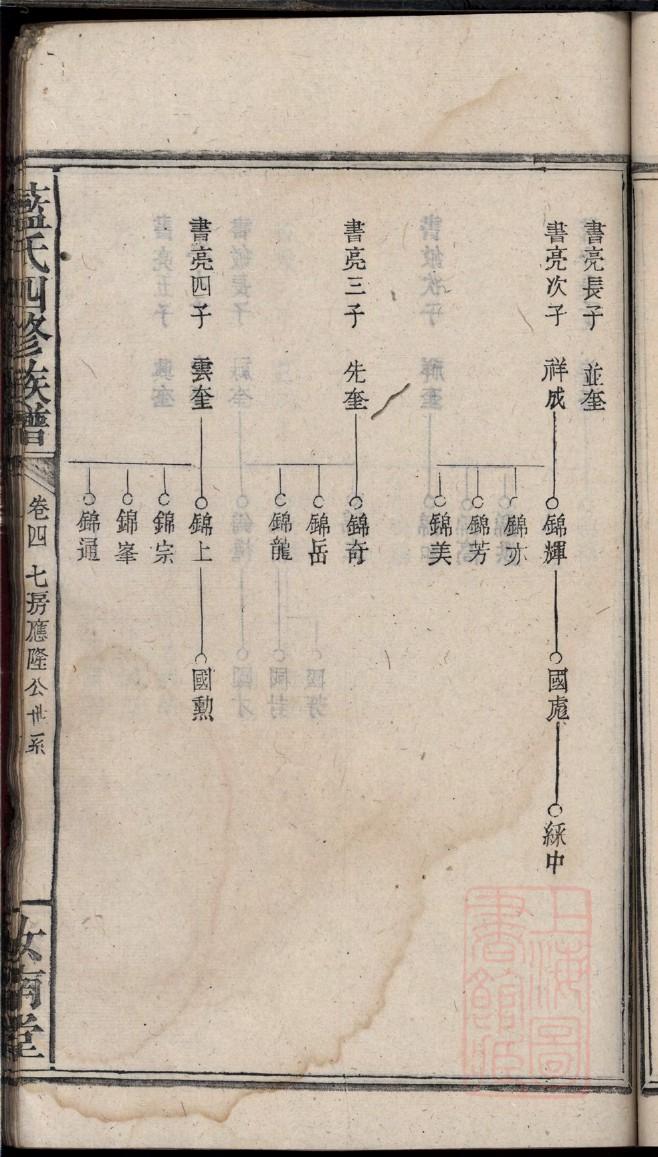 書亮長子 並奎
書亮次子 祥成
錦輝
國彪
綵中
錦亦
錦芳
錦美
書亮三子 先奎
錦奇
錦岳
錦龍
書亮四子 雲奎
錦上
國勲
錦宗
錦峯
錦通
藍氏四修族譜
卷四 七房應隆公世系
汝南堂
上海圖
書館藏